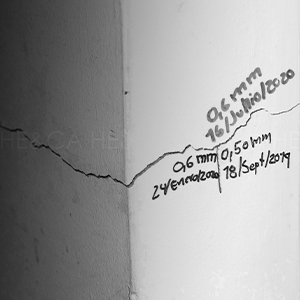 0,6 mm
16/Julio/2020
0,6 mm
24/Enero/2020
0,50 mm
18/Sept/2019